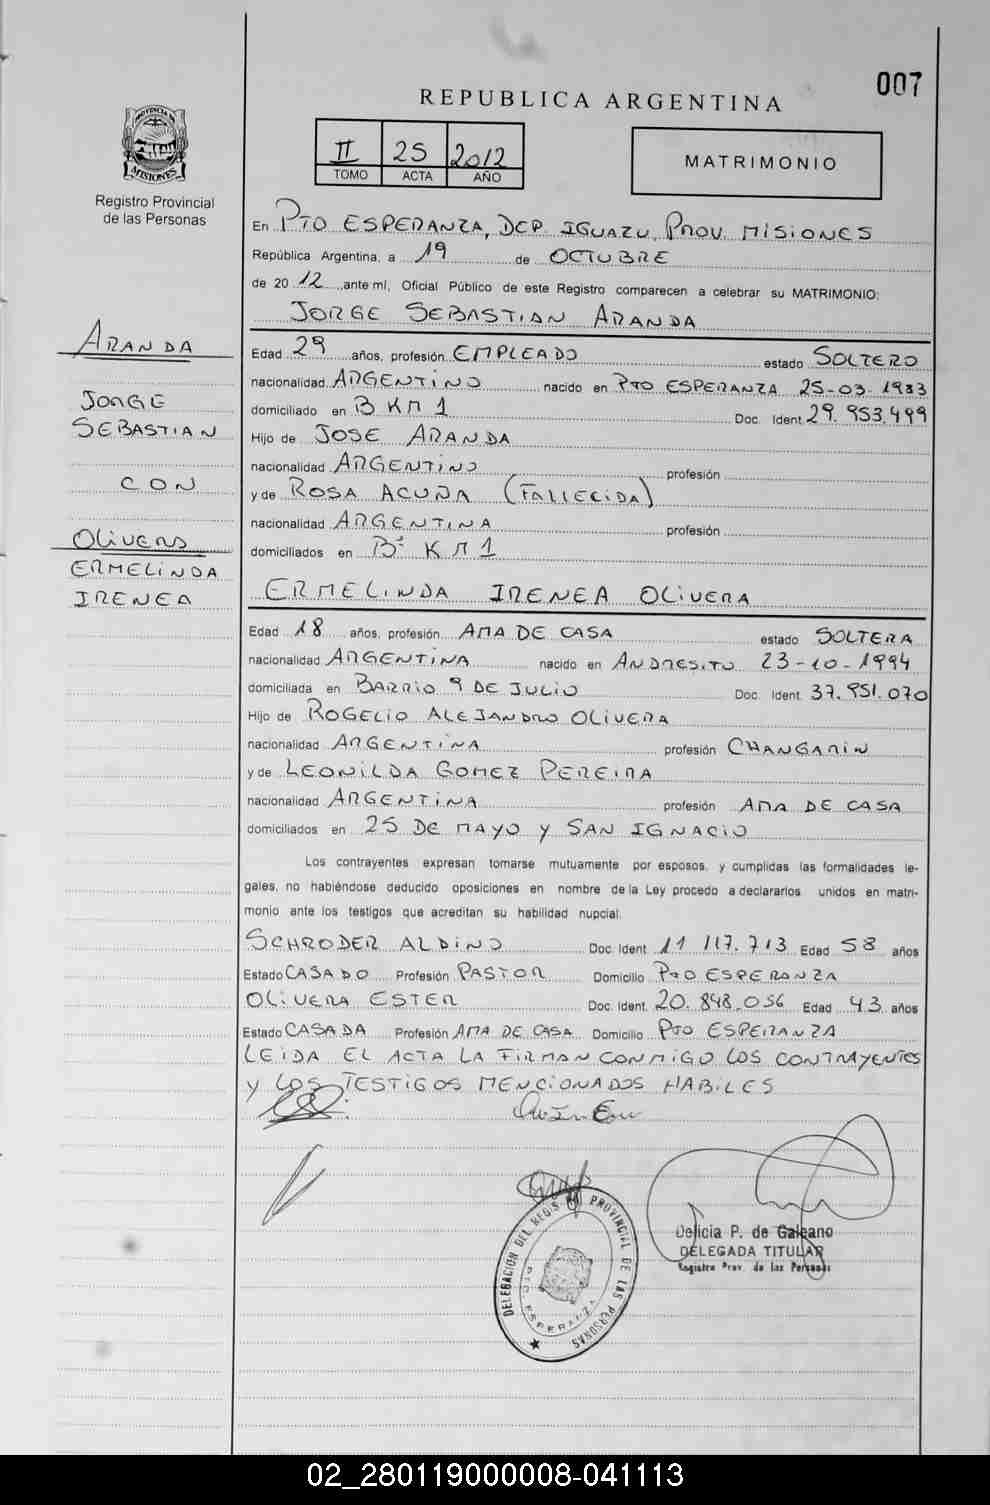 007
REPUBLICA ARGENTINA
PROVINCIA DE MISIONES
Registro Provincial
de las Personas
II 25 2012
TOMO ACTA AÑO
MATRIMONIO
En PTO ESPERANZA, DEP. IGUAZU, PROV. MISIONES
República Argentina, a 19 de OCTUBRE
de 2012, ante mí, Oficial Público de este Registro comparecen a celebrar su MATRIMONIO:
JORGE SEBASTIAN ARANDA
ARANDA
JORGE
SEBASTIAN
CON
OLIVERA
ERMELINDA
IRENEA
Edad 29 años, profesión EMPLEADO estado SOLTERO
nacionalidad ARGENTINO nacido en PTO ESPERANZA 25-03-1983
domiciliado en B KM 1 Doc. Ident. 29.953.499
Hijo de JOSE ARANDA
nacionalidad ARGENTINO profesión
y de ROSA ACUÑA (FALLECIDA)
nacionalidad ARGENTINA profesión
domiciliados en Bº KM 1
ERMELINDA IRENEA OLIVERA
Edad 18 años, profesión AMA DE CASA estado SOLTERA
nacionalidad ARGENTINA nacido en ANDRESITO 23-10-1994
domiciliada en BARRIO 9 DE JULIO Doc. Ident. 37.951.070
Hijo de ROGELIO ALEJANDRO OLIVERA
nacionalidad ARGENTINA profesión CHANGARIN
y de LEONILDA GOMEZ PEREIRA
nacionalidad ARGENTINA profesión AMA DE CASA
domiciliados en 25 DE MAYO Y SAN IGNACIO
Los contrayentes expresan tomarse mutuamente por esposos, y cumplidas las formalidades le-
gales, no habiéndose deducido oposiciones en nombre de la Ley procedo a declararlos unidos en matri-
monio ante los testigos que acreditan su habilidad nupcial.
SCHRODER ALDINO Doc. Ident. 11 117.713 Edad 58 años
Estado CASADO Profesión PASTOR Domicilio PTO ESPERANZA
OLIVERA ESTER Doc. Ident. 20.848.056 Edad 43 años
Estado CASADA Profesión AMA DE CASA Domicilio PTO ESPERANZA
LEIDA EL ACTA LA FIRMAN CONMIGO LOS CONTRAYENTES
Y LOS TESTIGOS MENCIONADOS HABILES
DELEGACION DEL REGIS PROVINCIAL DE LAS PERSONAS
PTO. ESPERANZA
Delicia P. de Galeano
DELEGADA TITULAR
Registro Prov. de las Personas
02_280119000008-041113